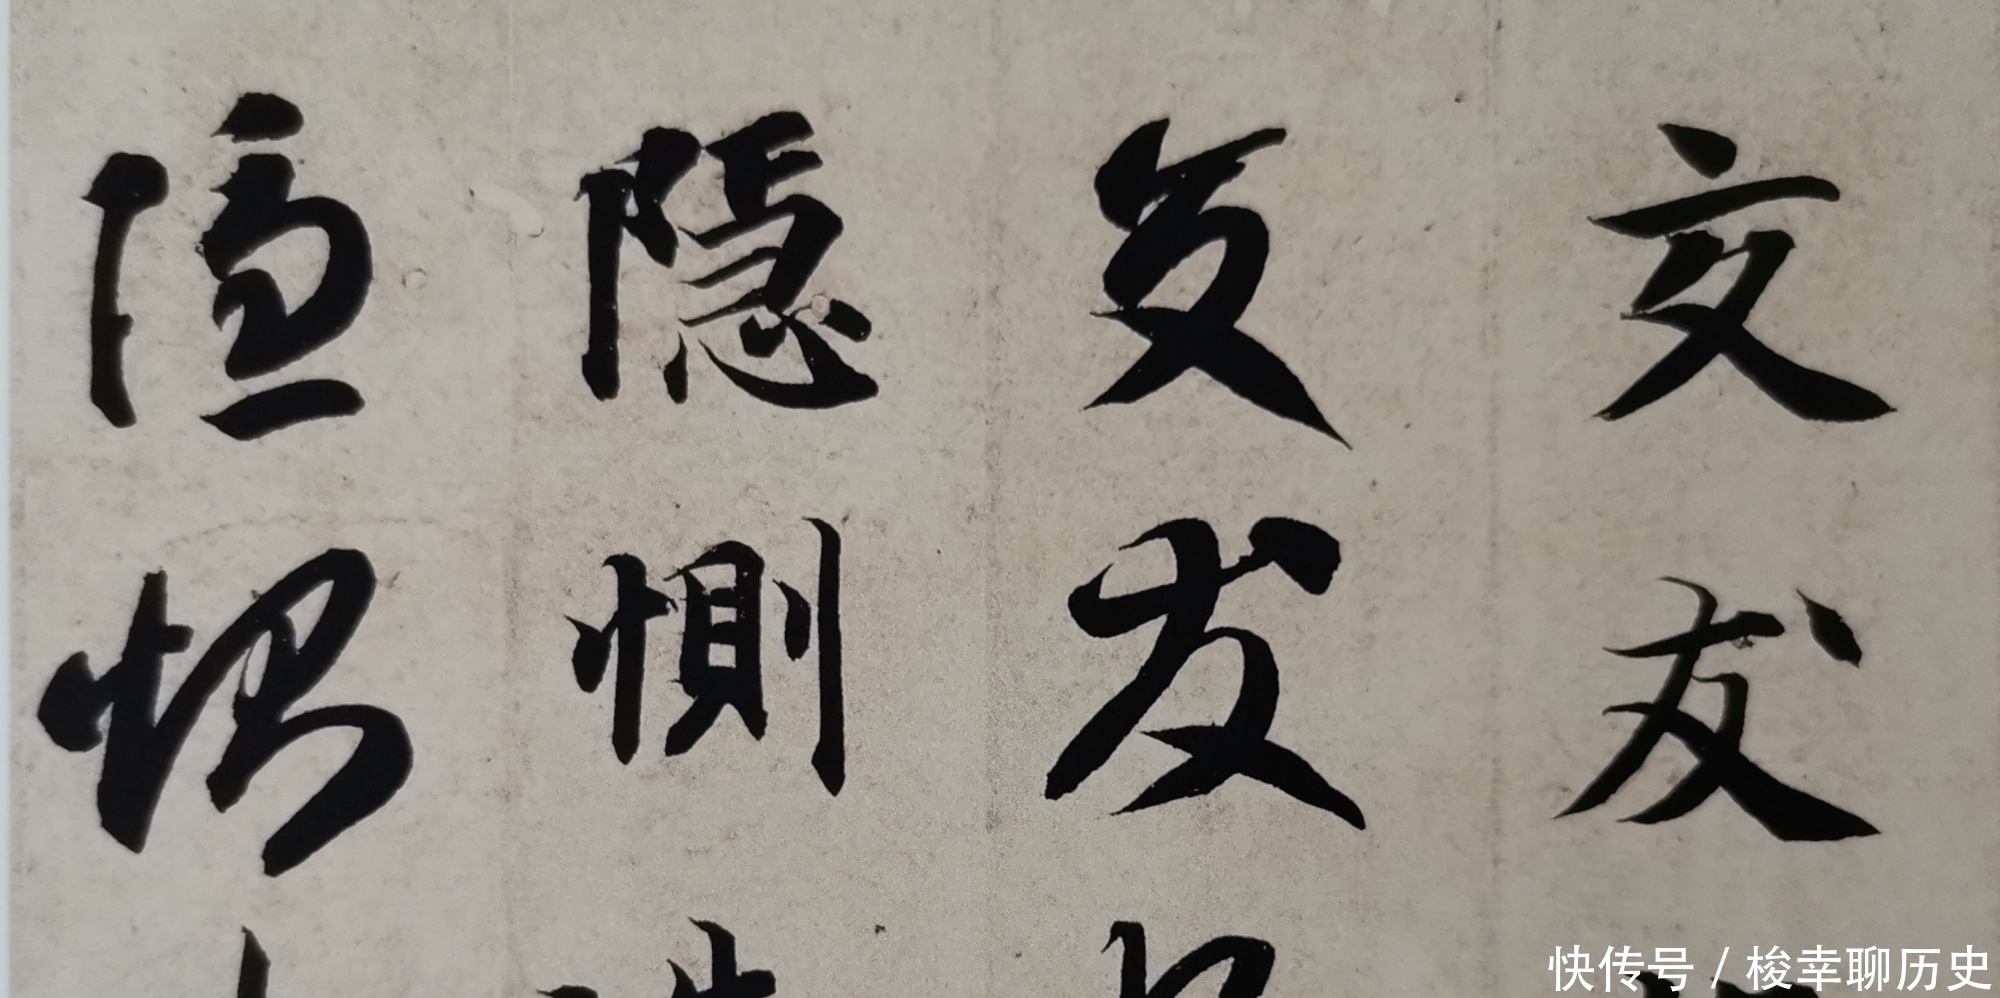 交友
交友
隱惻
隱惻
快传号 / 梭幸聊历史